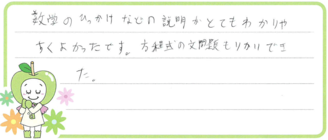 数学のひっかけなどの説明がとてもわかりや
すくよかったです。方程式の文問題もりかいでき
た。